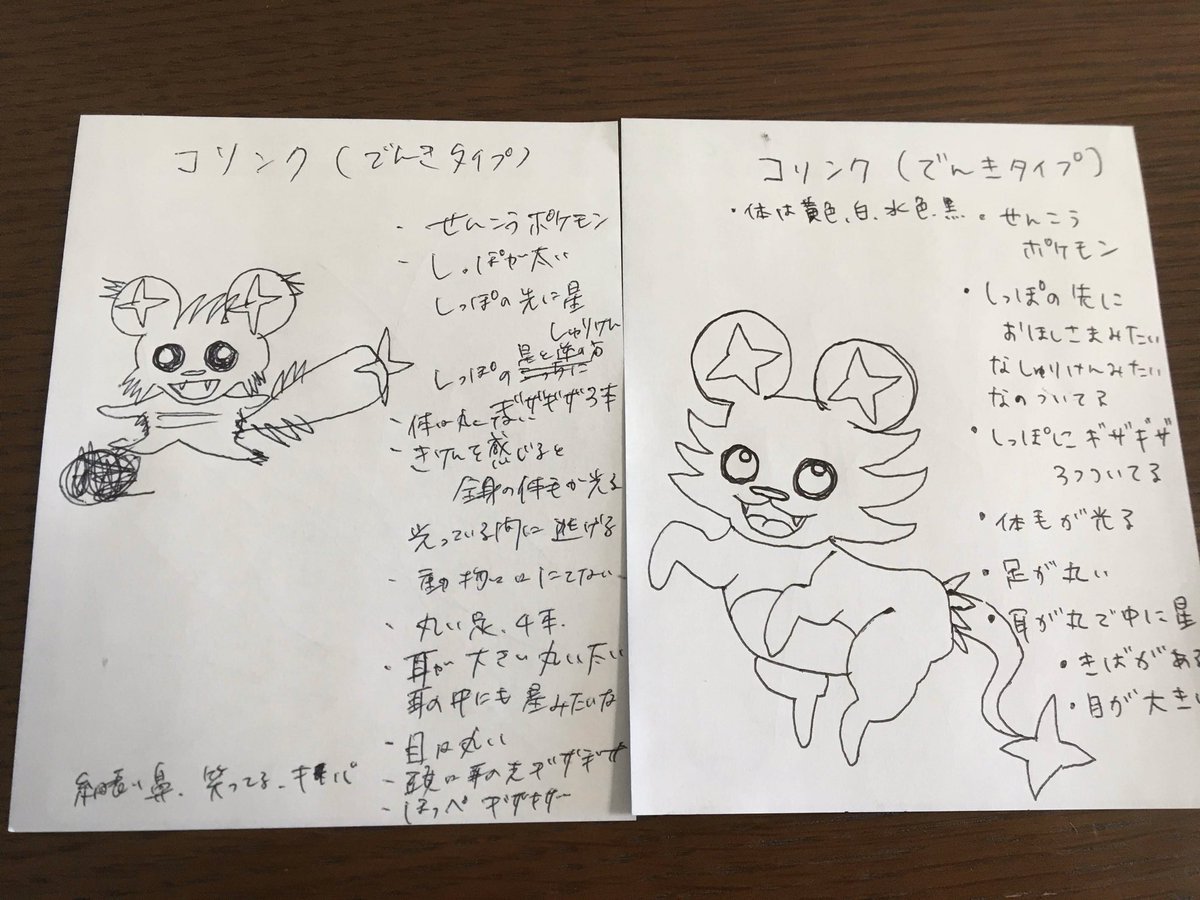 コリンク(でんきタイプ)
・せんこうポケモン
・しっぽが太い
しっぽの先に星
しゅりけん
しっぽの
ギザギザ3本
・体は
・きけんを感じると
全身の体毛が光る
光っている間に逃げる
・動物
・丸い足、4本
・耳が大きい丸い太い
耳の中にも星みたいな
・目は丸い
・頭に耳の先ギザギザ
・ほっぺギザギザ
細長い鼻、笑ってる、キバ
コリンク(でんきタイプ)
・体は黄色、白、水色、黒
・せんこう
ポケモン
・しっぽの先に
おほしさまみたい
なしゅりけんみたい
なのついてる
・しっぽにギザギザ
3つついてる
・体毛が光る
・足が丸い
・耳が丸で中に星
・きばがある
・目が大きい